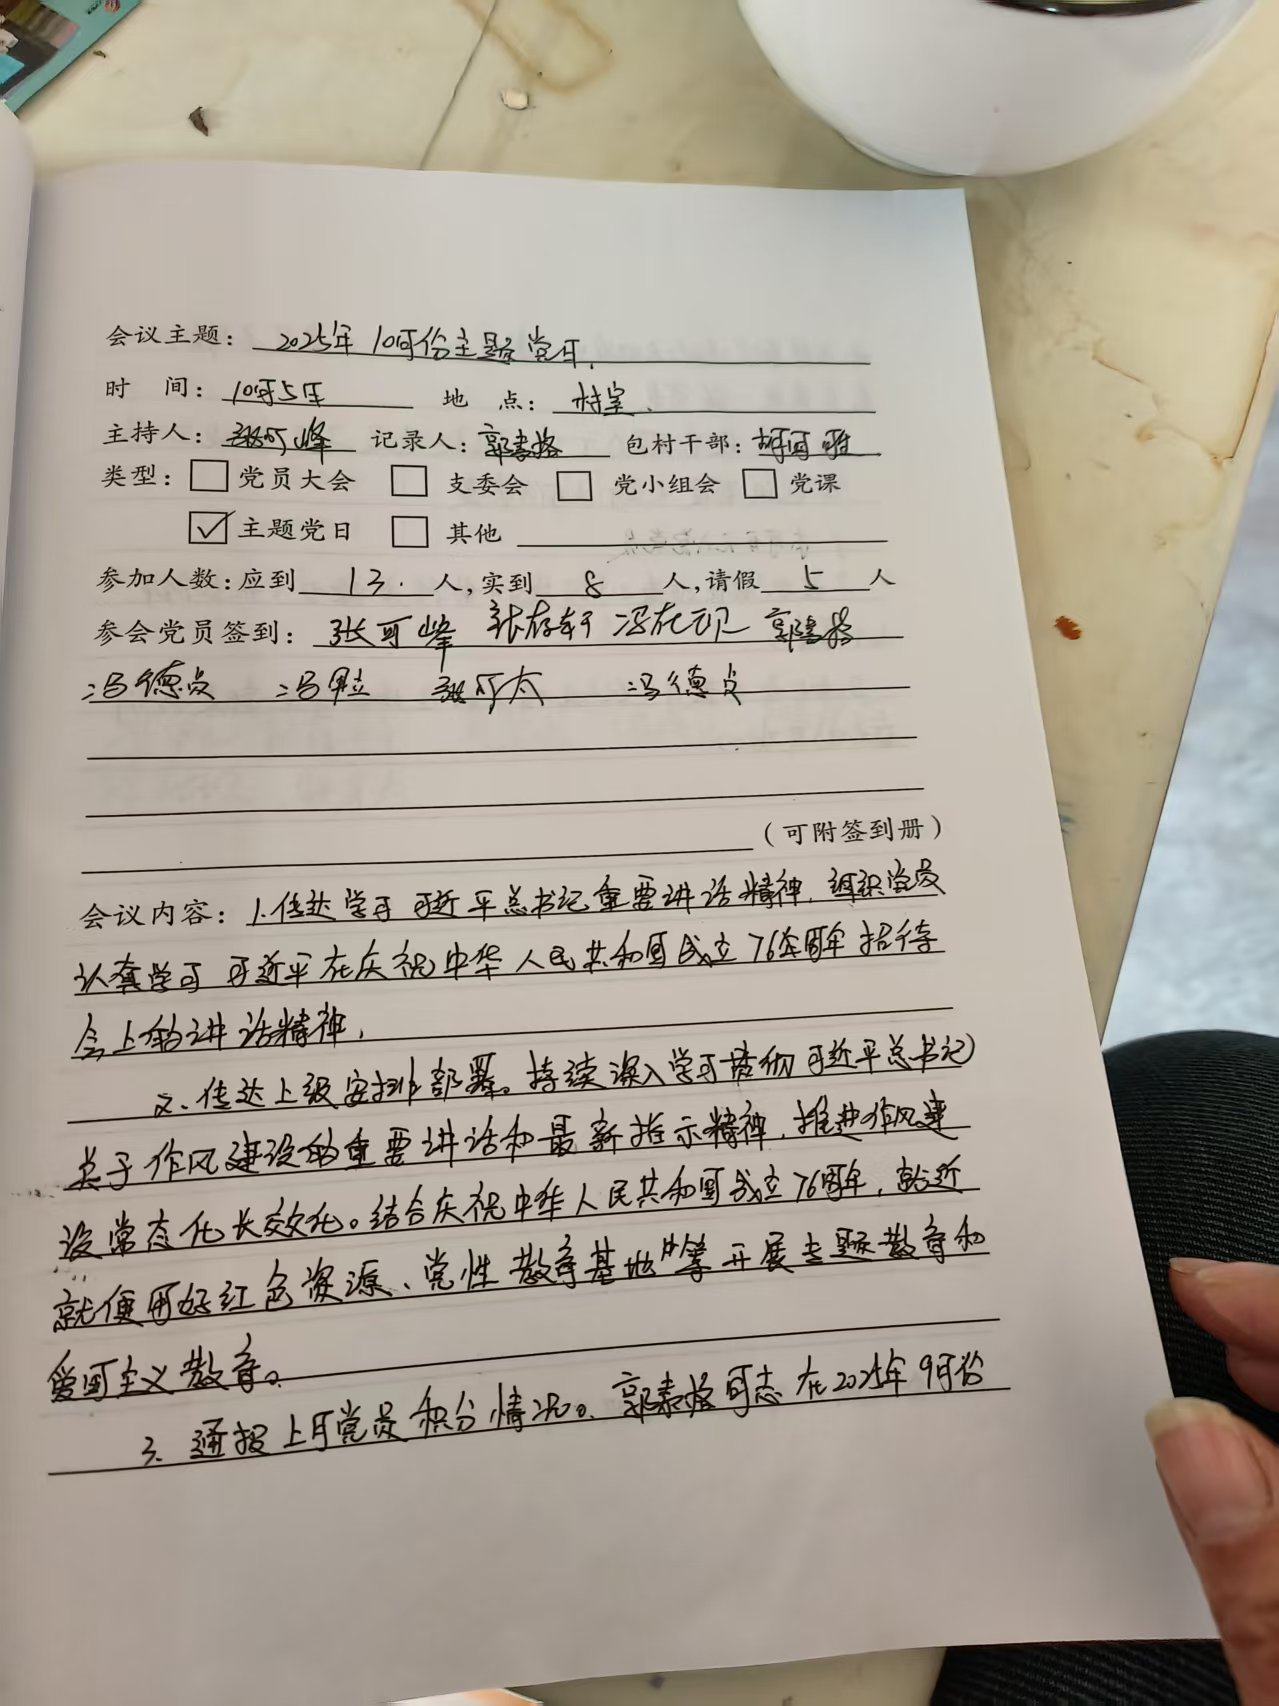 会议主题： 2025年10月份主题党日.
时 间：10月5日 地 点：村室.
主持人：张可峰 记录人：郭素格 包村干部：
类型：□党员大会 □支委会 □党小组会 □党课
☑主题党日 □其他
参加人数：应到 13. 人，实到 8 人，请假 5 人
参会党员签到：张可峰 冯在 郭素格
冯德 冯 张可太 冯德
（可附签到册）
会议内容：1.传达学习习近平总书记重要讲话精神，组织党员
认真学习习近平在庆祝中华人民共和国成立76周年招待
会上的讲话精神，
2、传达上级安排部署。持续深入学习贯彻习近平总书记
关于作风建设的重要讲话和最新指示精神，推进作风建
设常态化长效化。结合庆祝中华人民共和国成立76周年，就近
就便用好红色资源、党性教育基地"等开展主题教育和
爱国主义教育。
3、通报上月党员积分情况。郭素格同志在2025年9月份